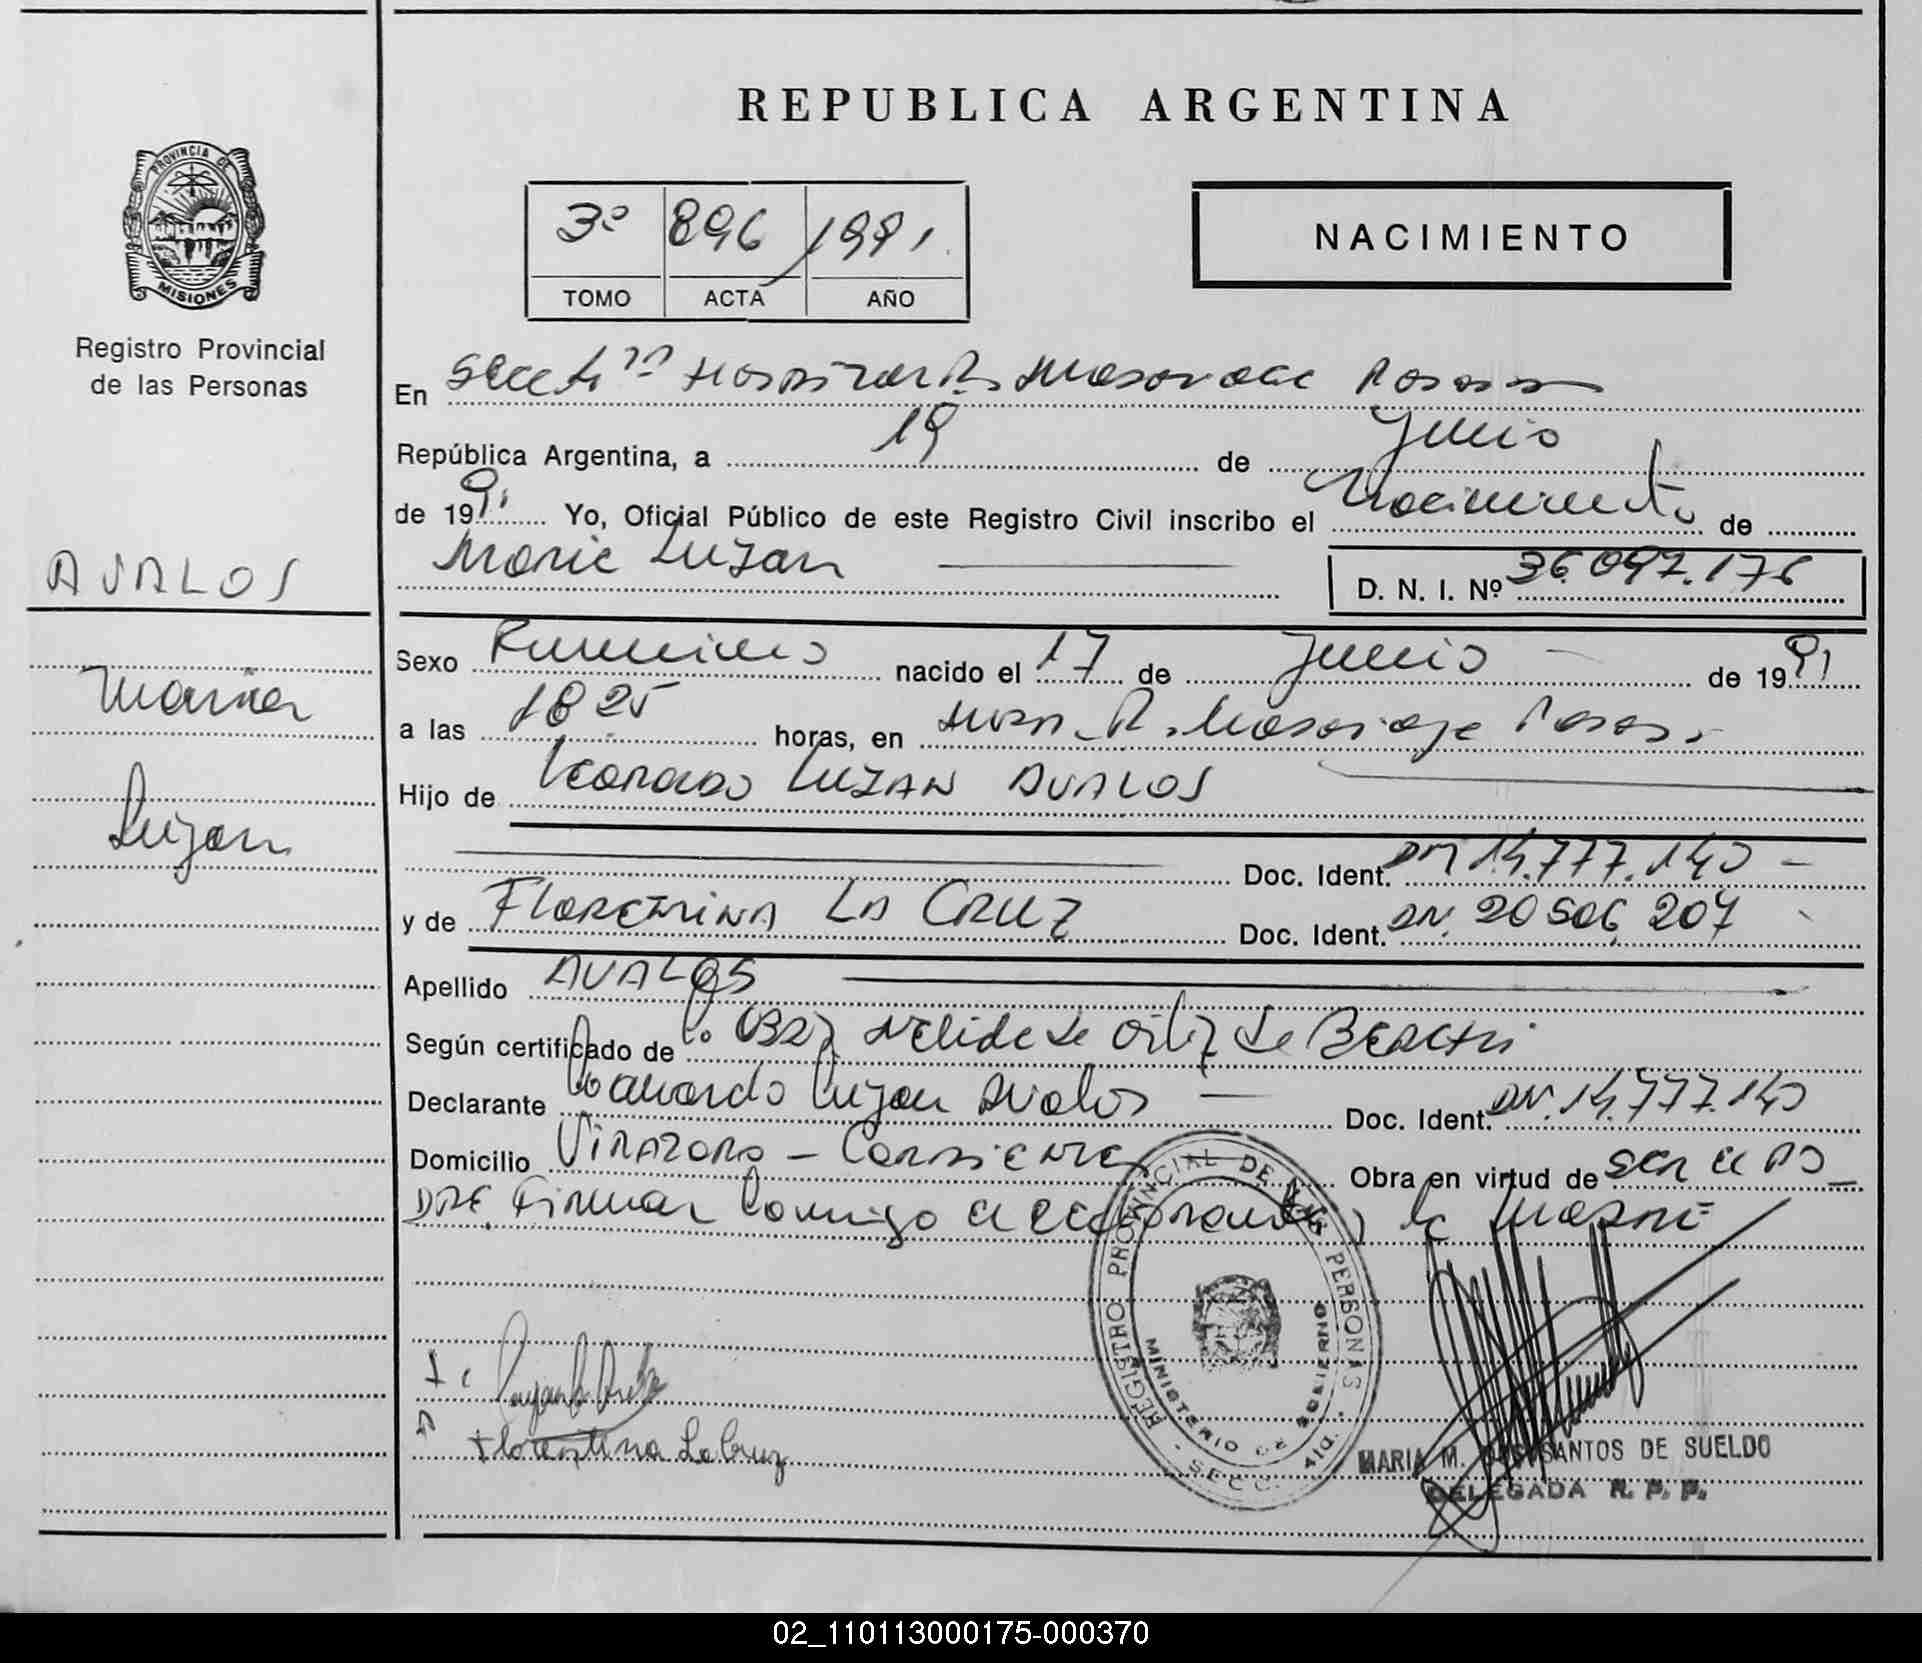 REPUBLICA ARGENTINA
PROVINCIA DE
MISIONES
Registro Provincial
de las Personas
3º 896 1991
TOMO ACTA AÑO
NACIMIENTO
En Secc 4ta Hospital R. Madariaga Posadas
República Argentina, a 19 de Junio
de 1991 Yo, Oficial Público de este Registro Civil inscribo el Nacimiento de
Maria Lujan
D. N. I. Nº 36.097.176
AVALOS
Maria
Lujan
Sexo Femenino nacido el 17 de Junio de 1991
a las 18 25 horas, en Hosp. R. Madariaga Posadas
Hijo de Leonardo LUJAN AVALOS
Doc. Ident. DNI 14.777.140
y de FLORENTINA LA CRUZ Doc. Ident. DN. 20 506 207
Apellido AVALOS
Según certificado de la Obst Nelide de Ortiz de
Declarante Leonardo Lujan Avalos Doc. Ident. DN. 14.777.140
Domicilio VIRAZORO - Corrientes Obra en virtud de ser el PA
DRE. Firman Conmigo el declarante y la Madre
Florentina La Cruz
REGISTRO PROVINCIAL DE LAS PERSONAS
MINISTERIO DE GOBIERNO
SECC. 4ta
MARIA M. DOS SANTOS DE SUELDO
DELEGADA R. P. P.
02_110113000175-000370